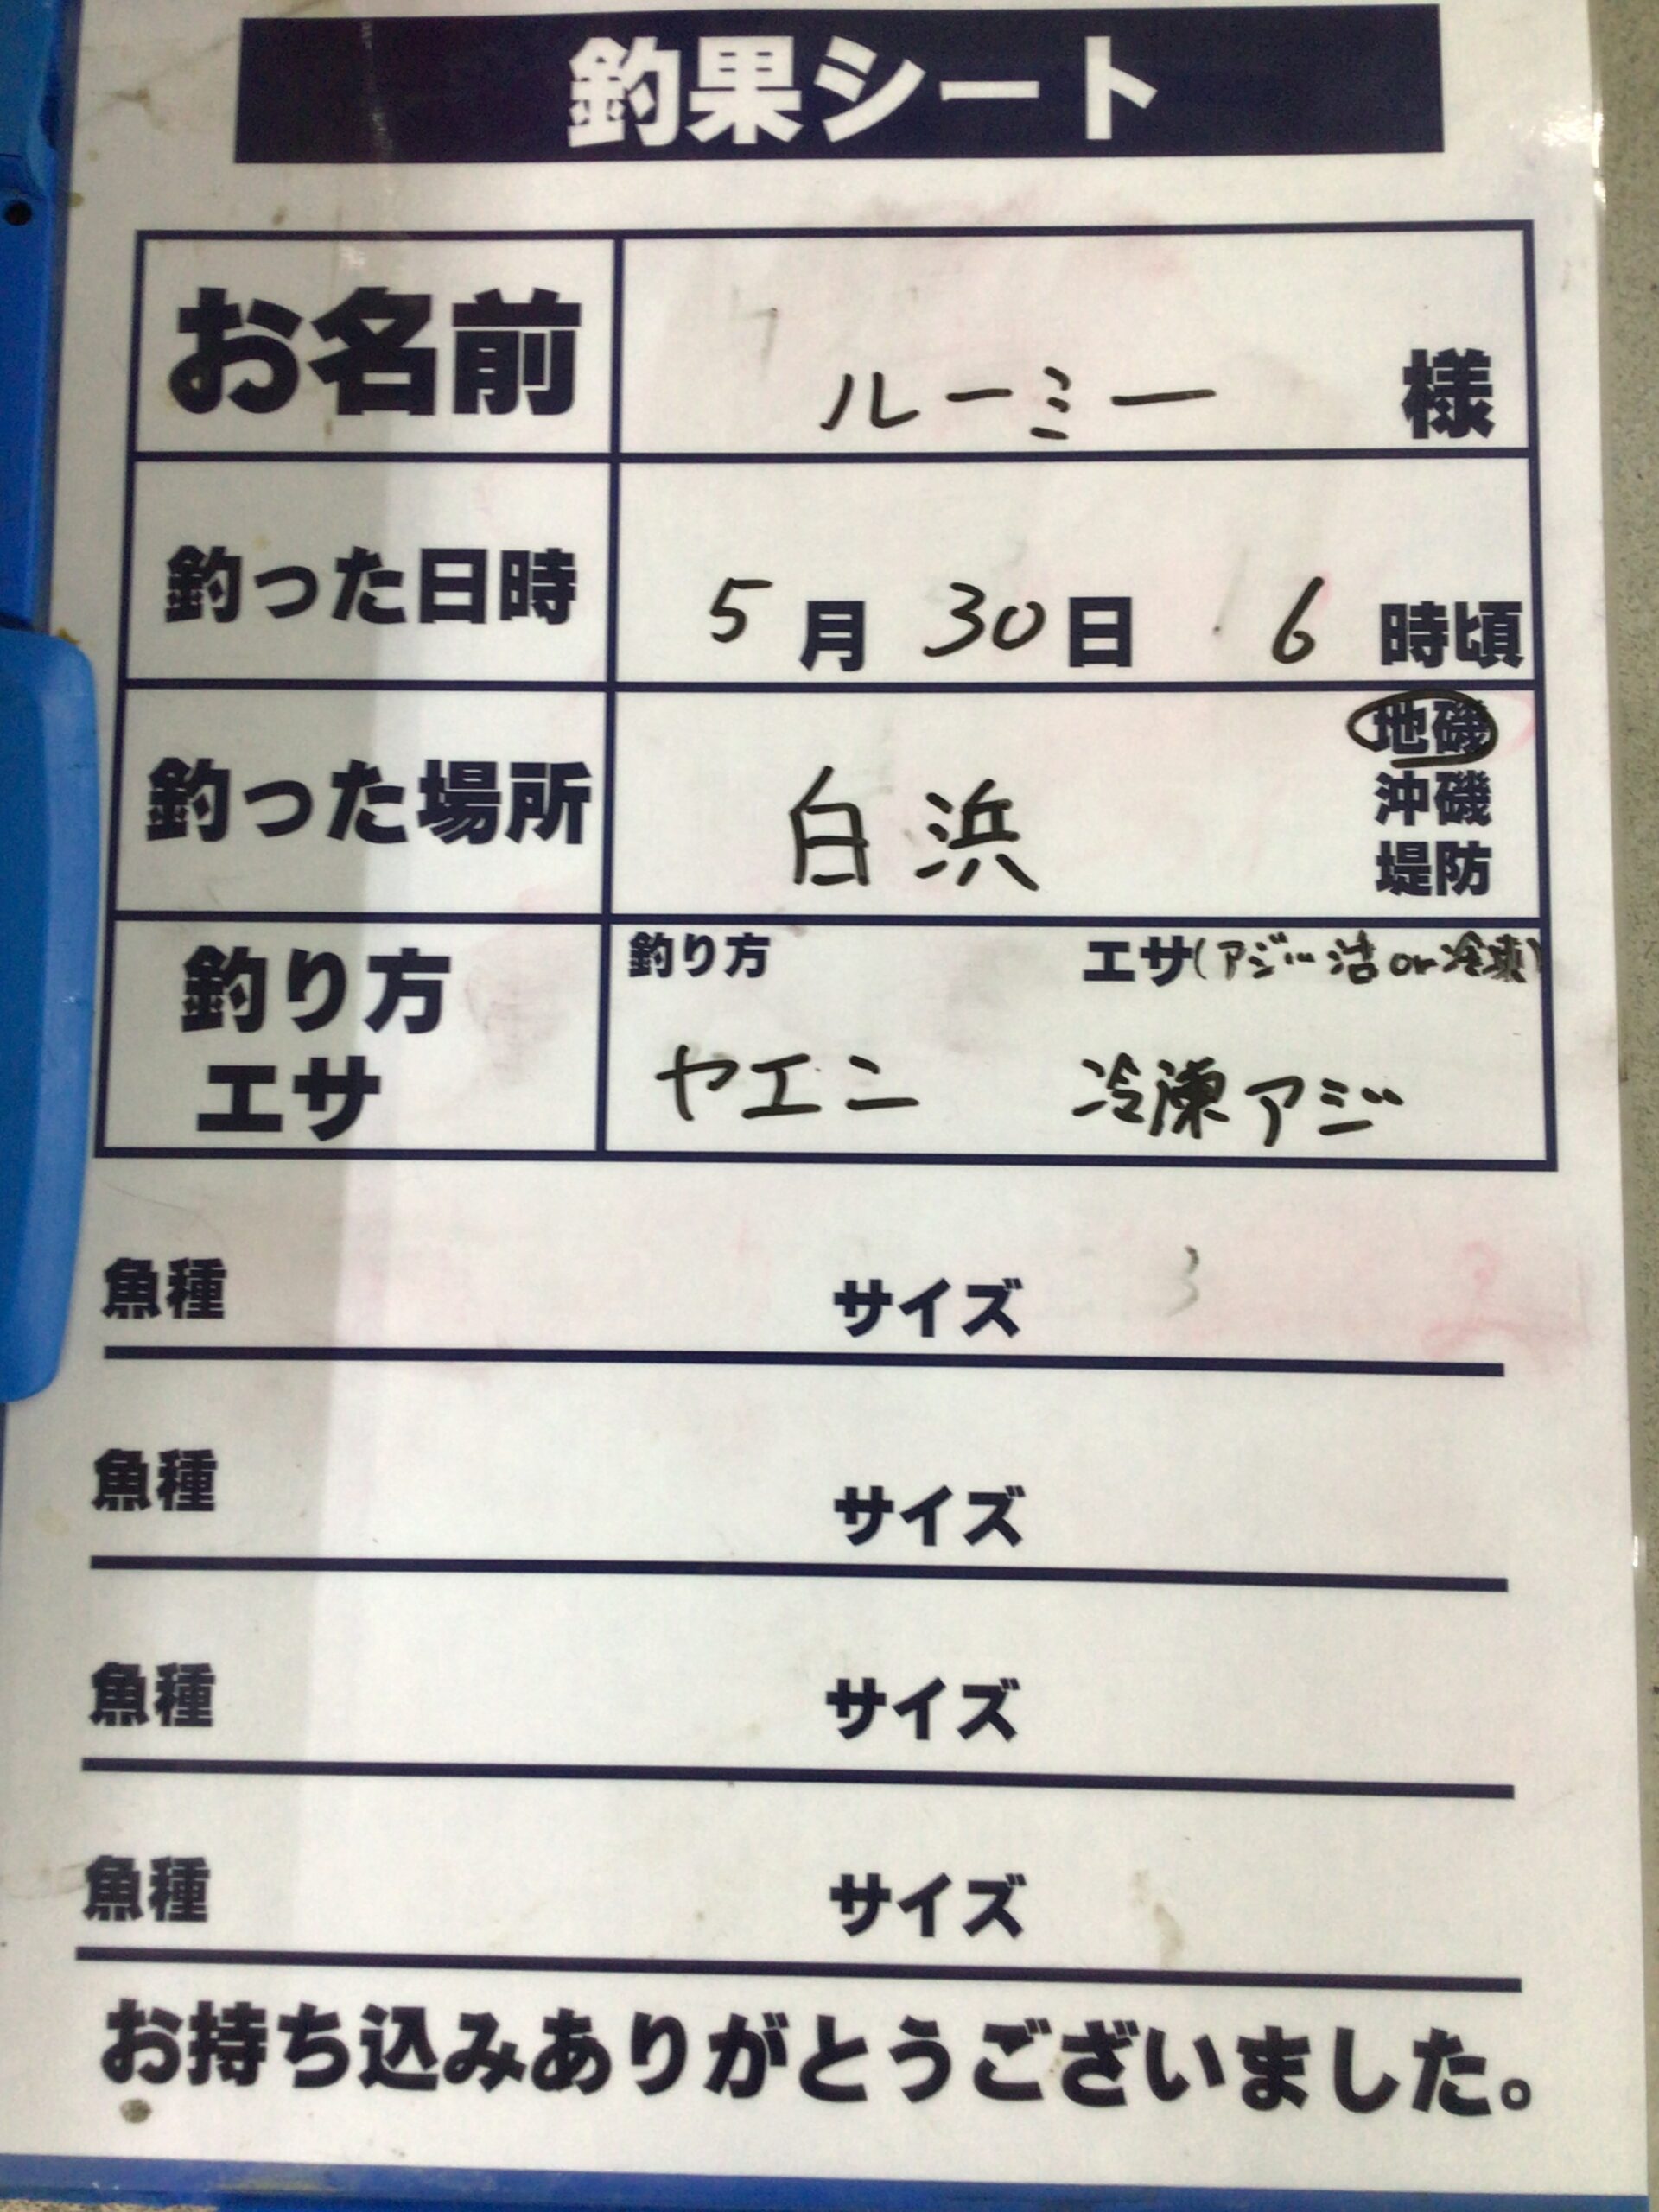 釣果シート
お名前 ルーミー 様
釣った日時 5月30日 6時頃
釣った場所 白浜 地磯
沖磯
堤防
釣り方 エサ
釣り方 エサ(アジ… 活or冷凍)
ヤエン 冷凍アジ
魚種 サイズ
魚種 サイズ
魚種 サイズ
魚種 サイズ
お持ち込みありがとうございました。